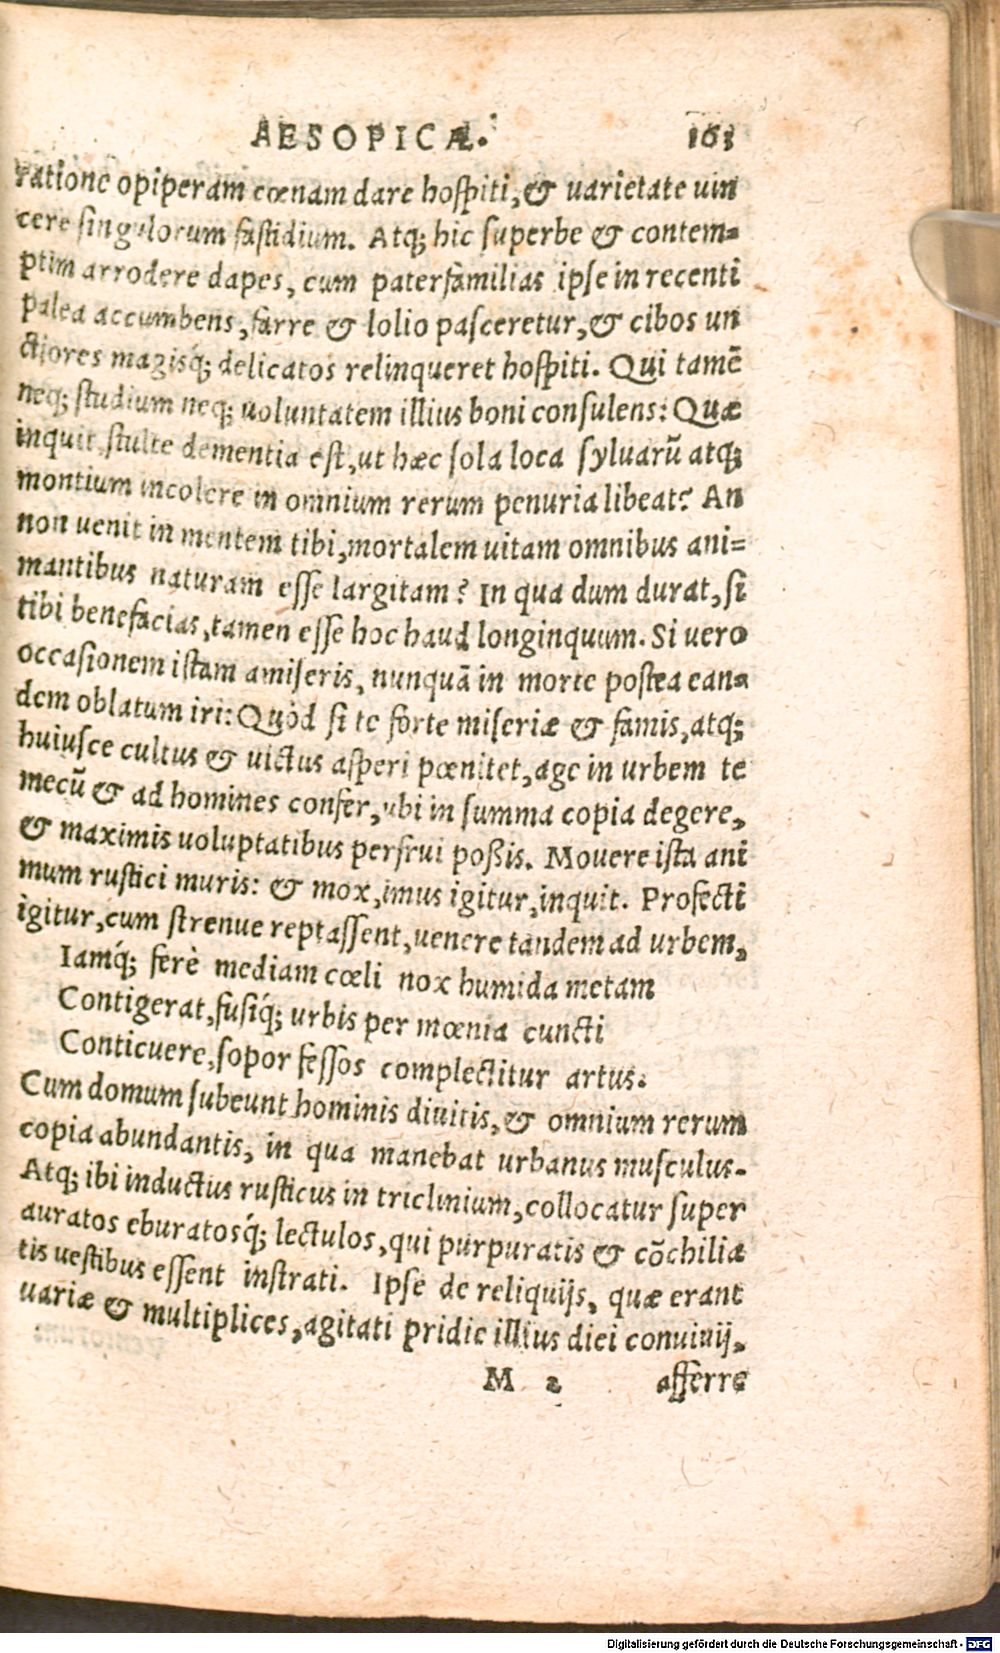 AESOPICÆ. 163
ratione opiperam cœnam dare hospiti, & uarietate uin
cere singulorum fastidium. Atq; hic superbe & contem=
ptim arrodere dapes, cum paterfamilias ipse in recenti
palea accumbens, farre & lolio pasceretur, & cibos un
ctiores magisq́; delicatos relinqueret hospiti. Qui tamē
neq; studium neq; uoluntatem illius boni consulens: Quæ
inquit, stulte dementia est, ut hæc sola loca syluarū atq;
montium incolere in omnium rerum penuria libeat? An
non uenit in mentem tibi, mortalem uitam omnibus ani=
mantibus naturam esse largitam? In qua dum durat, si
tibi benefacias, tamen esse hoc haud longinquum. Si uero
occasionem istam amiseris, nunquā in morte postea ean=
dem oblatum iri: Quòd si te forte miseriæ & famis, atq;
huiusce cultus & uictus asperi pœnitet, age in urbem te
mecū & ad homines confer, ubi in summa copia degere,
& maximis uoluptatibus perfrui poßis. Mouere ista ani
mum rustici muris: & mox, imus igitur, inquit. Profecti
igitur, cum strenue reptassent, uenere tandem ad urbem,
Iamq́; ferè mediam cœli nox humida metam
Contigerat, fusiq́; urbis per mœnia cuncti
Conticuere, sopor fessos complectitur artus.
Cum domum subeunt hominis diuitis, & omnium rerum
copia abundantis, in qua manebat urbanus musculus.
Atq; ibi inductus rusticus in triclinium, collocatur super
auratos eburatosq́; lectulos, qui purpuratis & cōchilia
tis vestibus essent instrati. Ipse de reliquijs, quæ erant
uariæ & multiplices, agitati pridie illius diei conuiuij,
M 2 afferre
Digitalisierung gefördert durch die Deutsche Forschungsgemeinschaft - DFG